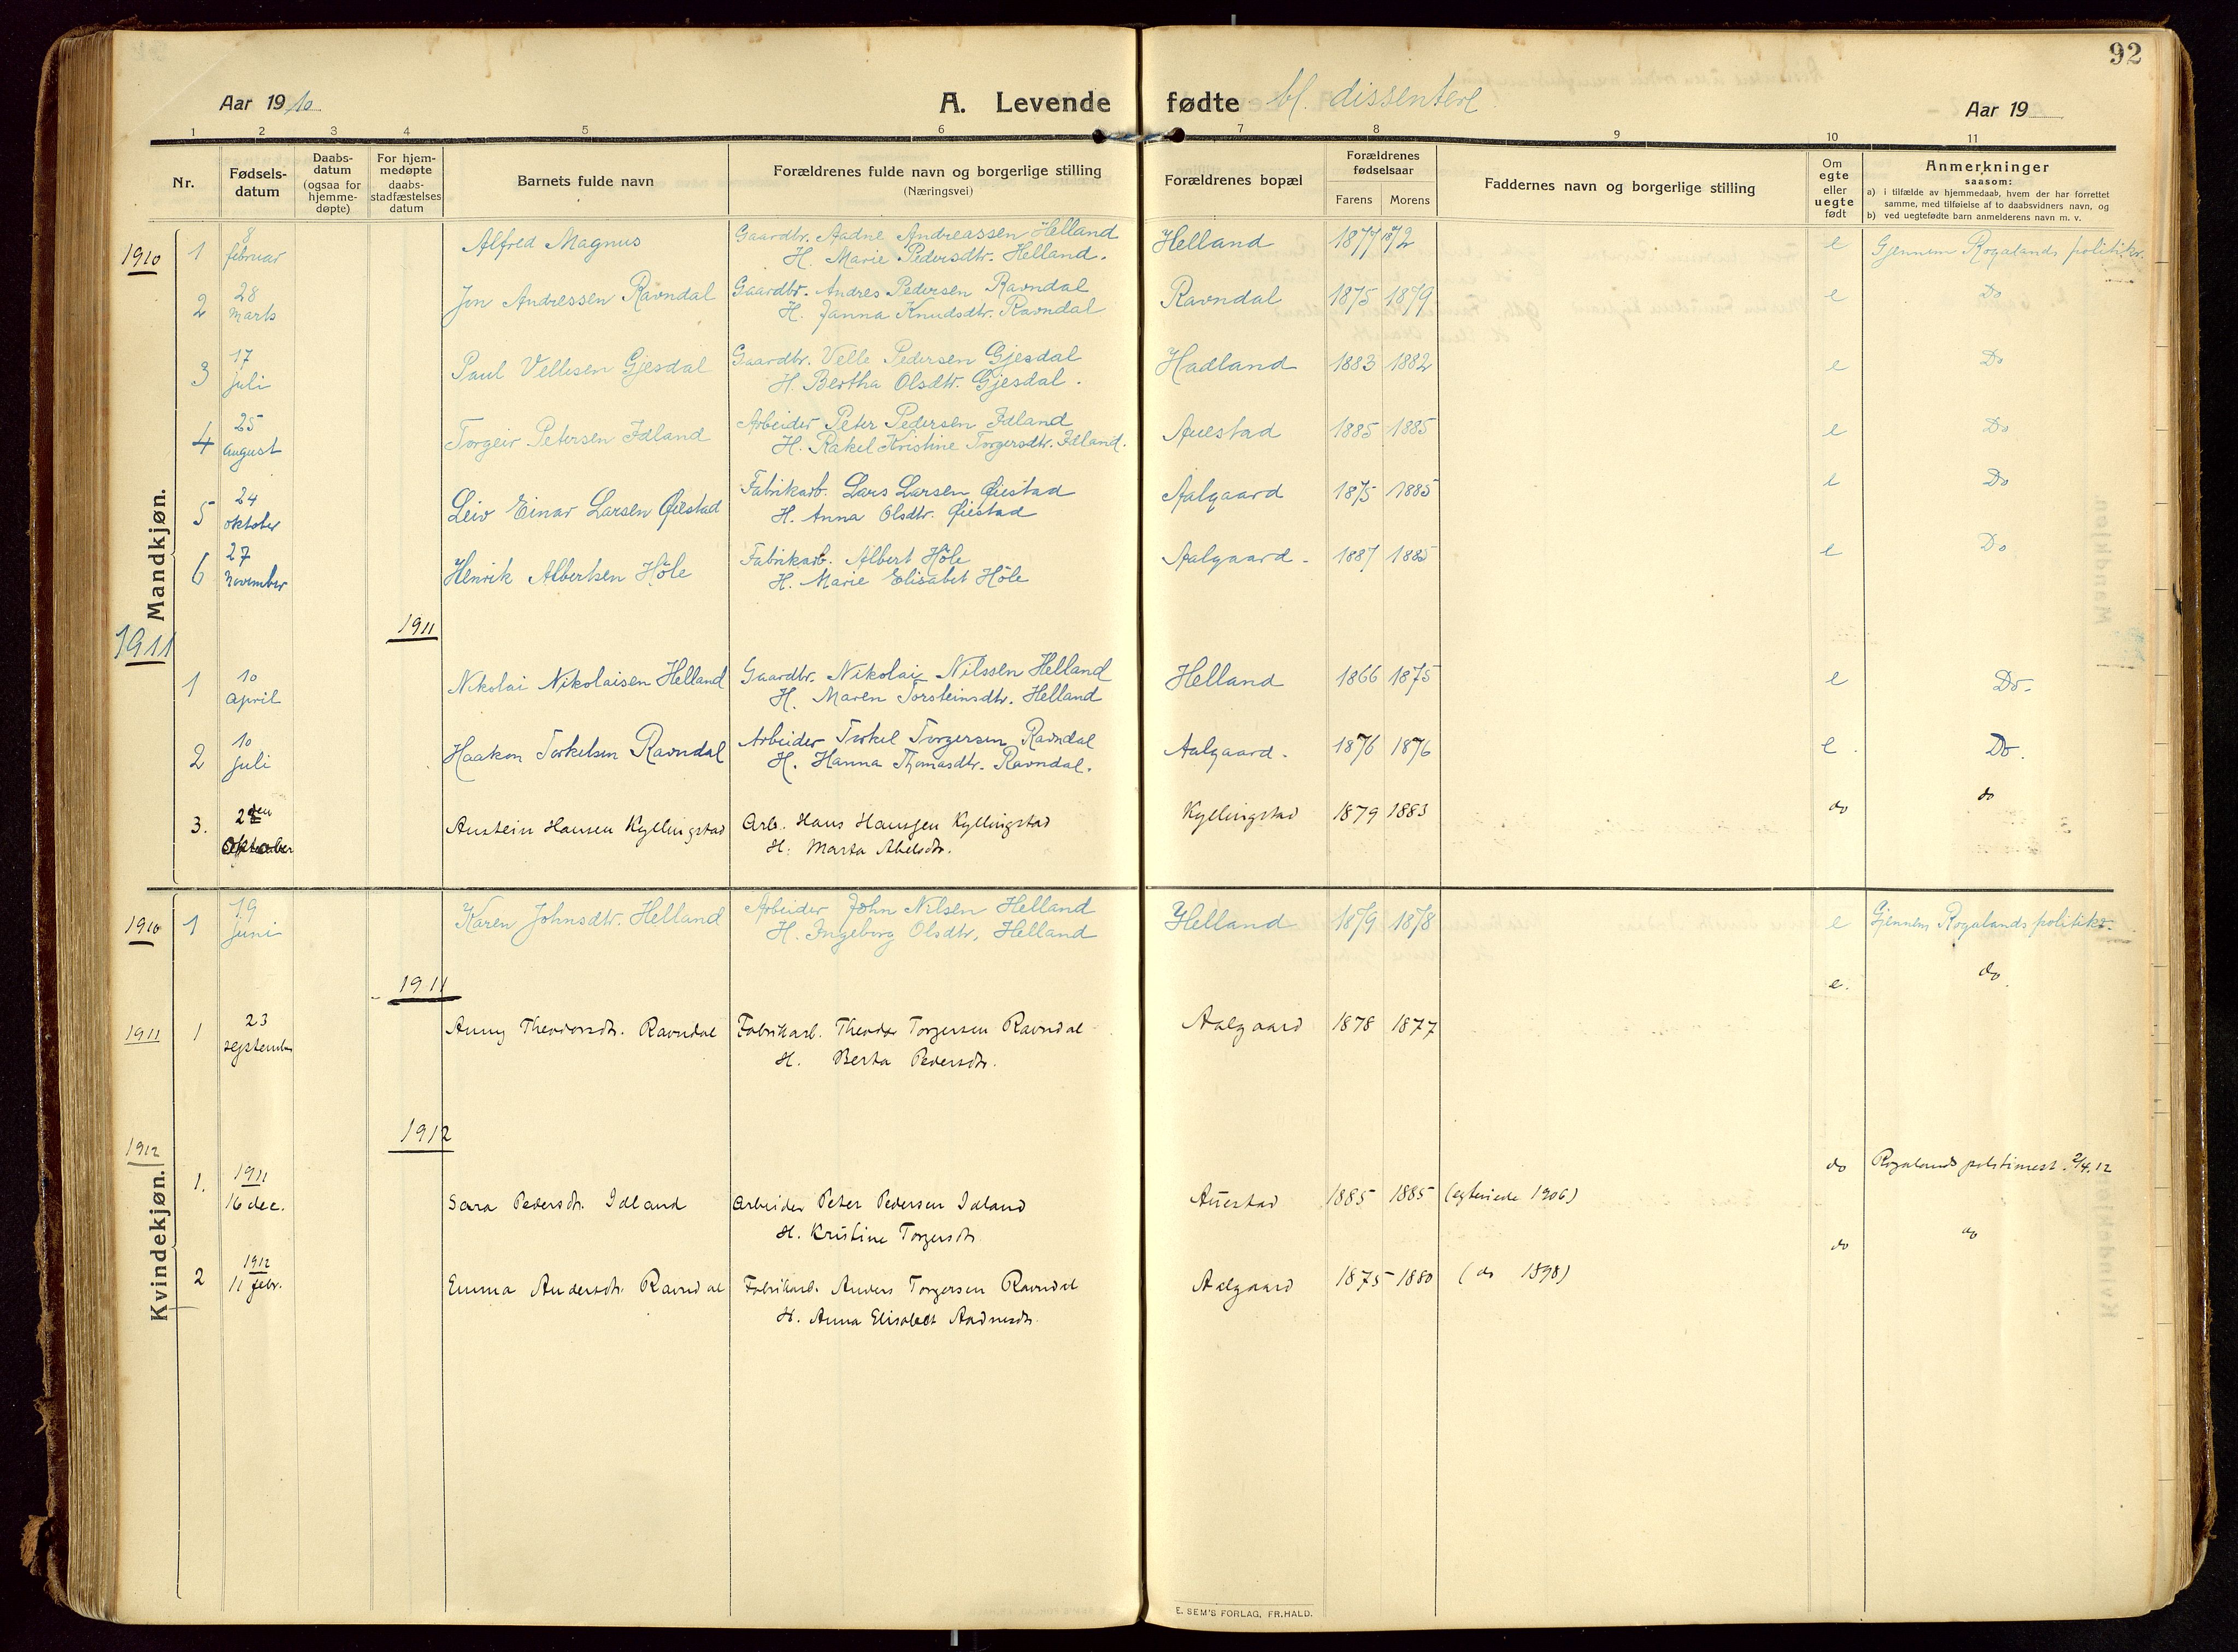 92
Aar 1910 A. Levende fødte bl. dissentere Aar 19
1 2 3 4 5 6 7 8 9 10 11
Nr.
Fødsels-
datum
Daabs-
datum
(ogsaa for
hjemme-
døpte)
For hjem-
medøpte
daabs-
stadfæstelses
datum
Barnets fulde navn
Forældrenes fulde navn og borgerlige stilling
(Næringsvei)
Forældrenes bopæl
Forældrenes
fødselsaar
Farens Morens
Faddernes navn og borgerlige stilling
Om
egte
eller
uegte
født
Anmerkninger
saasom:
a) i tilfælde av hjemmedaab, hvem der har forrettet
samme, med tilføielse af to daabsvidners navn, og
b) ved uegtefødte barn anmelderens navn m. v.
Mandkjøn.
1910 1 8 februar Alfred Magnus Gaardbr. Aadne Andreassen Helland Helland 1877 1872 e Gjennem Rogalands politikr.
H. Marie Pedersdtr. Helland.
2 28 Marts Jon Andressen Ravndal Gaardbr. Andres Pedersen Ravndal Ravndal 1875 1879 e Do
H. Janna Knudsdtr. Ravndal
3 17 juli Paul Vellesen Gjesdal Gaardbr. Velle Pedersen Gjesdal Hadland 1883 1882 e Do
H. Bertha Olsdtr. Gjesdal.
4 25 august Torgeir Petersen Idland Arbeider Peter Pedersen Idland Auestad 1885 1885 e Do
H. Rakel Kristine Torgersdtr. Idland.
5 24 oktober Leiv Einar Larsen Øiestad Fabrikarb. Lars Larsen Øiestad Aalgaard 1875 1885 e Do
H. Anna Olsdtr. Øiestad
6 27 november Henrik Albertsen Höle Fabrikarb. Albert Höle Aalgaard - 1887 1885 e Do
H. Marie Elisabet Höle
1911
1911
1 10 April Nikolai Nikolaisen Helland Gaardbr. Nikolai Nilssen Helland Helland 1866 1875 e Do.
H. Maren Torsteinsdtr. Helland
2 10 juli Haakon Torkelsen Ravndal Arbeider Torkel Torgersen Ravndal Aalgaard. 1876 1876 e. Do.
H. Hanna Thomasdtr. Ravndal.
3. Oktober Austein Hansen Kyllingstad Arb. Hans Hanssen Kyllingstad Kyllingstad 1879 1883 do do
H. Marta Abelsdtr.
Kvindekjøn.
1910 1 19 juni Karen Johnsdtr. Helland Arbeider John Nilsen Helland Helland 1879 1878 e Gjennem Rogalands politikr.
H. Ingeborg Olsdtr. Helland
1911
e. do
1911 1 23 september Anny Theodorsdtr. Ravndal Fabrikarb. Theodor Torgersen Ravndal Aalgaard 1878 1877
H. Berta Pedersdtr.
1912
1912
1. 1911 16 dec. Sara Pedersdtr. Idland Arbeider Peter Pedersen Idland Auestad 1885 1885 (egteviede 1906) do Rogalands politimest. 2/4.12
H. Kristine Torgersdtr.
2 1912 11 febr. Emma Andersdtr. Ravndal Fabrikarb. Anders Torgersen Ravndal Aalgaard 1875 1880 (do 1898) do do
H. Anna Elisabeth Aadnesdtr.
E. SEM'S FORLAG, FR.HALD.